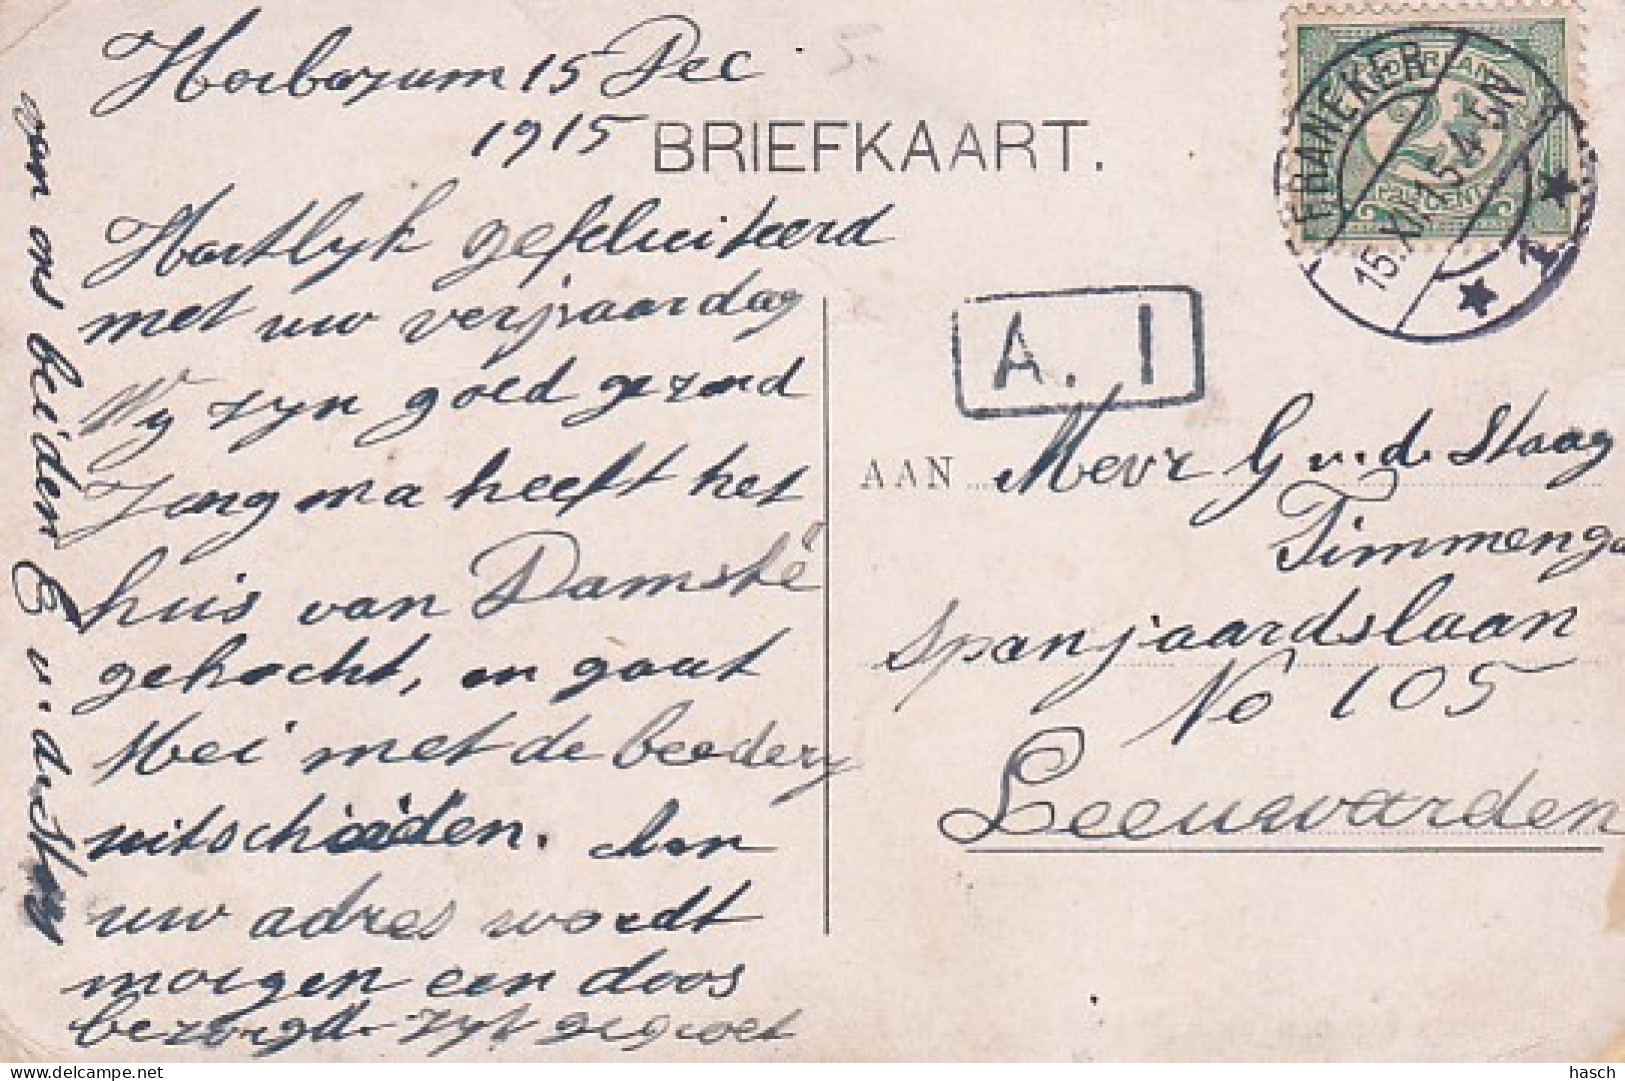 Herbayum 15 Dec
1915
BRIEFKAART.
Hartlyk gefeluiteerd
met uw verjaardag
Wy zyn goed gezond
Jongma heeft het
huis van Damsté
gekocht, en gaat
Mei met de boedery
uitscheiden. Aan
uw adres wordt
morgen een doos
bezorgd. zyt gegroet
van ons beiden
FRANEKER
15.XII.15.4-5N
1
A. 1
AAN Mevr G v. d. Staag
Timmenga
Spanjaardslaan
No 105
Leeuwarden
hasch